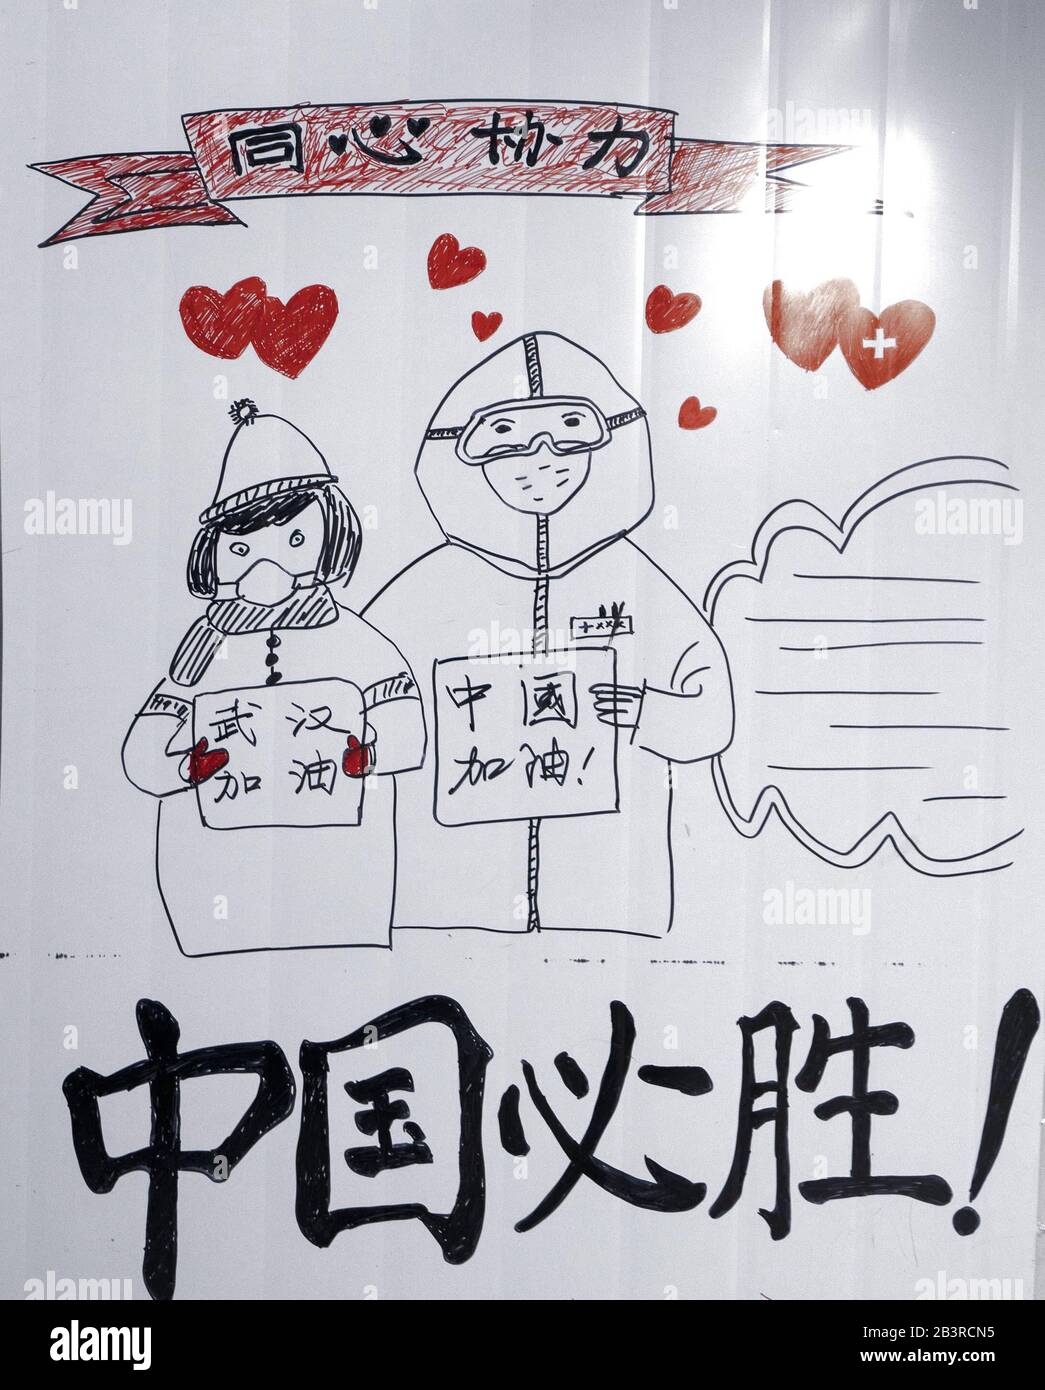 同心协力
武汉
加油
中國
加油!
+ xxx
中国必胜!
alamy
Image ID: 2B3RCN5
www.alamy.com